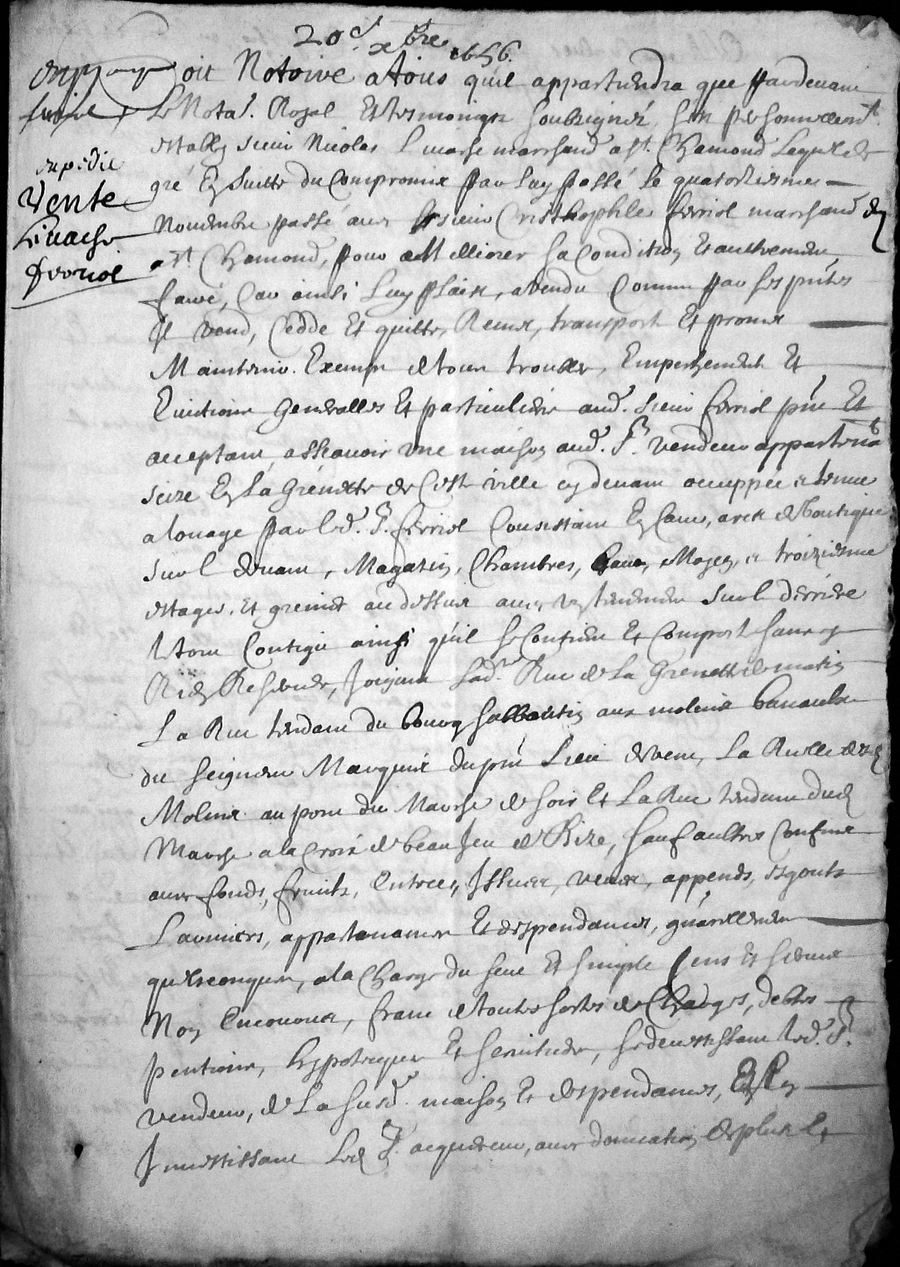 20e xbre 1656.
expedie
Vente
Livache
Ferriol
Soit Notoire a tous quil appartiendra que pardevant
Le Nota.re Royal Et tesmoingz soubzignez, S'est personnellemt.
estably sieur Nicolas Livache marchand a St. Chamond Lequel de
gré En suitte du Compromis par luy passé Le quatorziesme
Novembre passé avec sieur Cristhophle ferriol marchand
a St. Chamond, pour amelliorer sa Condition Et aultrement
Car ainsi Luy plait, a vendu Comme par ses pntes
Il vend, Cedde Et quitte, Remet, transporte Et promet
Maintenir Exempt de tous troubles, Empeschement Et
Evictions generalles Et particulieres aud. sieur ferriol pnt Et
acceptant, asscavoir une maison aud. Sr. vendeur appartenant
scize En La Grenette de Ceste ville cy devant occuppée et tenue
a louage par led. Sr. ferriol Consistant En Cave, arch de boutique
sur l devant, Magazin, Chambres, moyen et troiziesme
estages, Et grenier au dessus avec sur l derriere
Contigu ainsi quil se Contient Et Comporte sans
Rien Reserver, Joignant Lad. Rue de La Grenette de matin
La Rue tendant du bourg aux molins banaulx
du seigneur Marquis du pnt Lieu de vent, La Ruelle
Molins au pont du Marche de soir Et La Rue tendant dud.
Marche a la Croix de beau Jeu de Bize, sauf aultres Confins
avec fonds, fruits, Entrees, Issues, veues, appends, esgouts
Larmiers, appartenances Et despendances, generallement
quelconques, a la Charge du Cens Et simple Cens Et
Non Encourus, franc de toutes sortes de Charges, debtes
pentions, hypoteques Et servitudes, se devestissant led. Sr.
vendeur, de La susd. maison Et despendances, Et En
Investissant Led. Sr. acquereur, avec donnation de plus Et